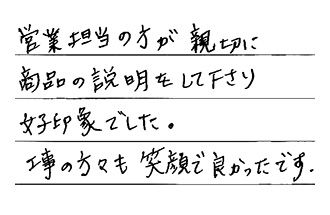 営業担当の方が親切に
商品の説明をして下さり
好印象でした。
工事の方々も笑顔で良かったです.